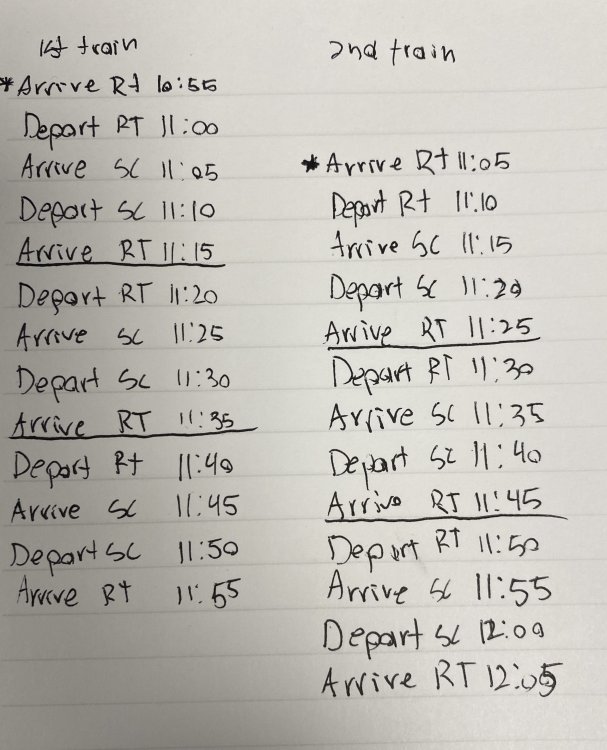 1st train
*Arrive Rt 10:55
Depart RT 11:00
Arrive SC 11:05
Depart SC 11:10
Arrive RT 11:15
Depart RT 11:20
Arrive SC 11:25
Depart SC 11:30
Arrive RT 11:35
Depart Rt 11:40
Arrive SC 11:45
Depart SC 11:50
Arrive Rt 11:55
2nd train
*Arrive Rt 11:05
Depart Rt 11:10
Arrive SC 11:15
Depart SC 11:20
Arrive RT 11:25
Depart RT 11:30
Arrive SC 11:35
Depart SC 11:40
Arrive RT 11:45
Depart RT 11:50
Arrive SC 11:55
Depart SC 12:00
Arrive RT 12:05